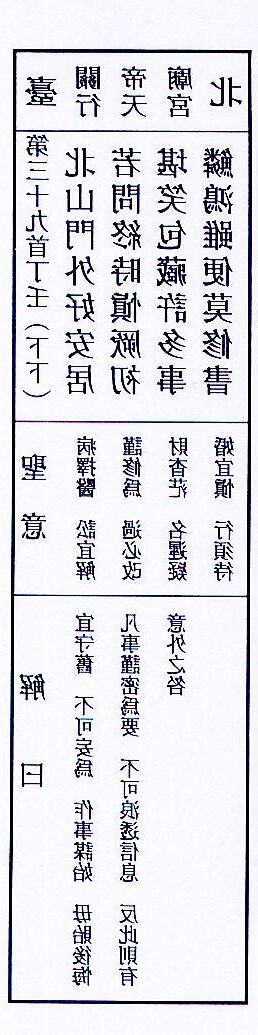 臺
關帝廟
行天宮
北
第三十九首丁壬（下下）
北山門外好安居
若問終時慎厥初
堪笑包藏許多事
鱗鴻雖便莫修書
聖意
病擇醫 訟宜解
謹修為 過必改
財查茫 名遲疑
婚宜慎 行須待
解曰
宜守舊 不可妄為 作事謀始 毋貽後悔
凡事謹密為要 不可浪透信息 反此則有
意外之咎